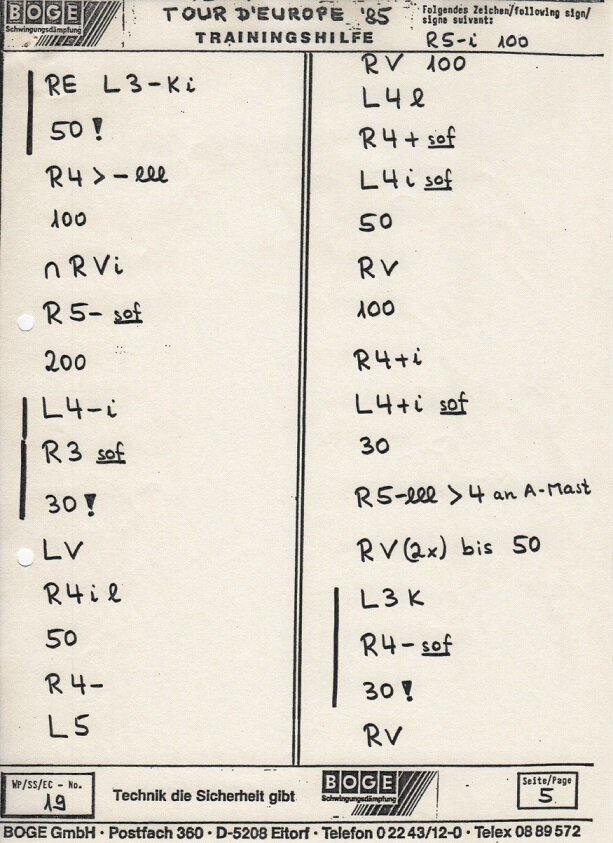 BOGE
Schwingungsdämpfung
TOUR D'EUROPE '85
TRAININGSHILFE
Folgendes Zeichen/following sign/
signe suivant:
R5-i 100
RE L3-Ki
50!
R4>-lll
100
∩RVi
R5- sof
200
L4-i
R3 sof
30!
LV
R4il
50
R4-
L5
RV 100
L4l
R4+ sof
L4i sof
50
RV
100
R4+i
L4+i sof
30
R5-lll >4 an A-Mast
RV(2x) bis 50
L3K
R4- sof
30!
RV
WP/SS/EC - No.
19
Technik die Sicherheit gibt
BOGE
Schwingungsdämpfung
Seite/Page
5
BOGE GmbH · Postfach 360 · D-5208 Eitorf · Telefon 0 22 43/12-0 · Telex 08 89 572